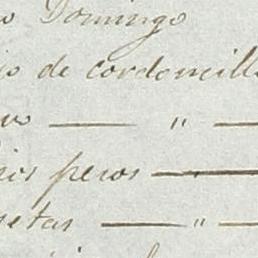 o Domingo
io de cordoncill
vo — " —
rios pesos —
setas — " —